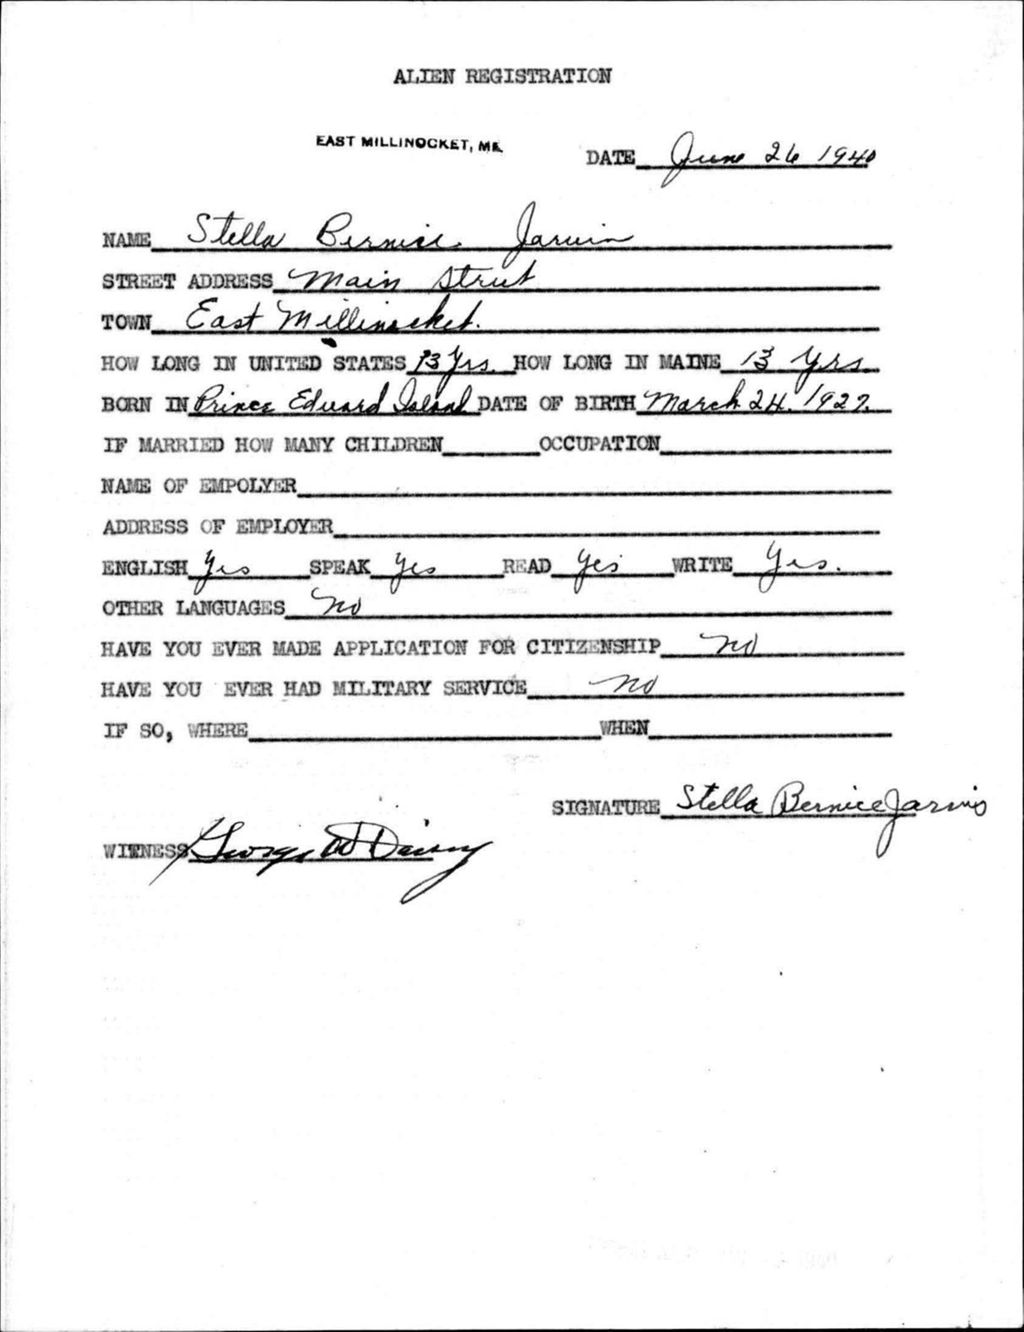 ALIEN REGISTRATION
EAST MILLINOCKET, ME.
DATE June 26 1940
NAME Stella Bernice Jarvis
STREET ADDRESS Main Street
TOWN East Millinocket.
HOW LONG IN UNITED STATES 13 Yrs. HOW LONG IN MAINE 13 Yrs.
BORN IN Prince Edward Island DATE OF BIRTH March 24. 1927.
IF MARRIED HOW MANY CHILDREN OCCUPATION
NAME OF EMPOLYER
ADDRESS OF EMPLOYER
ENGLISH Yes SPEAK Yes READ Yes WRITE Yes.
OTHER LANGUAGES No
HAVE YOU EVER MADE APPLICATION FOR CITIZENSHIP No
HAVE YOU EVER HAD MILITARY SERVICE No
IF SO, WHERE WHEN
SIGNATURE Stella Bernice Jarvis
WITNESS George W